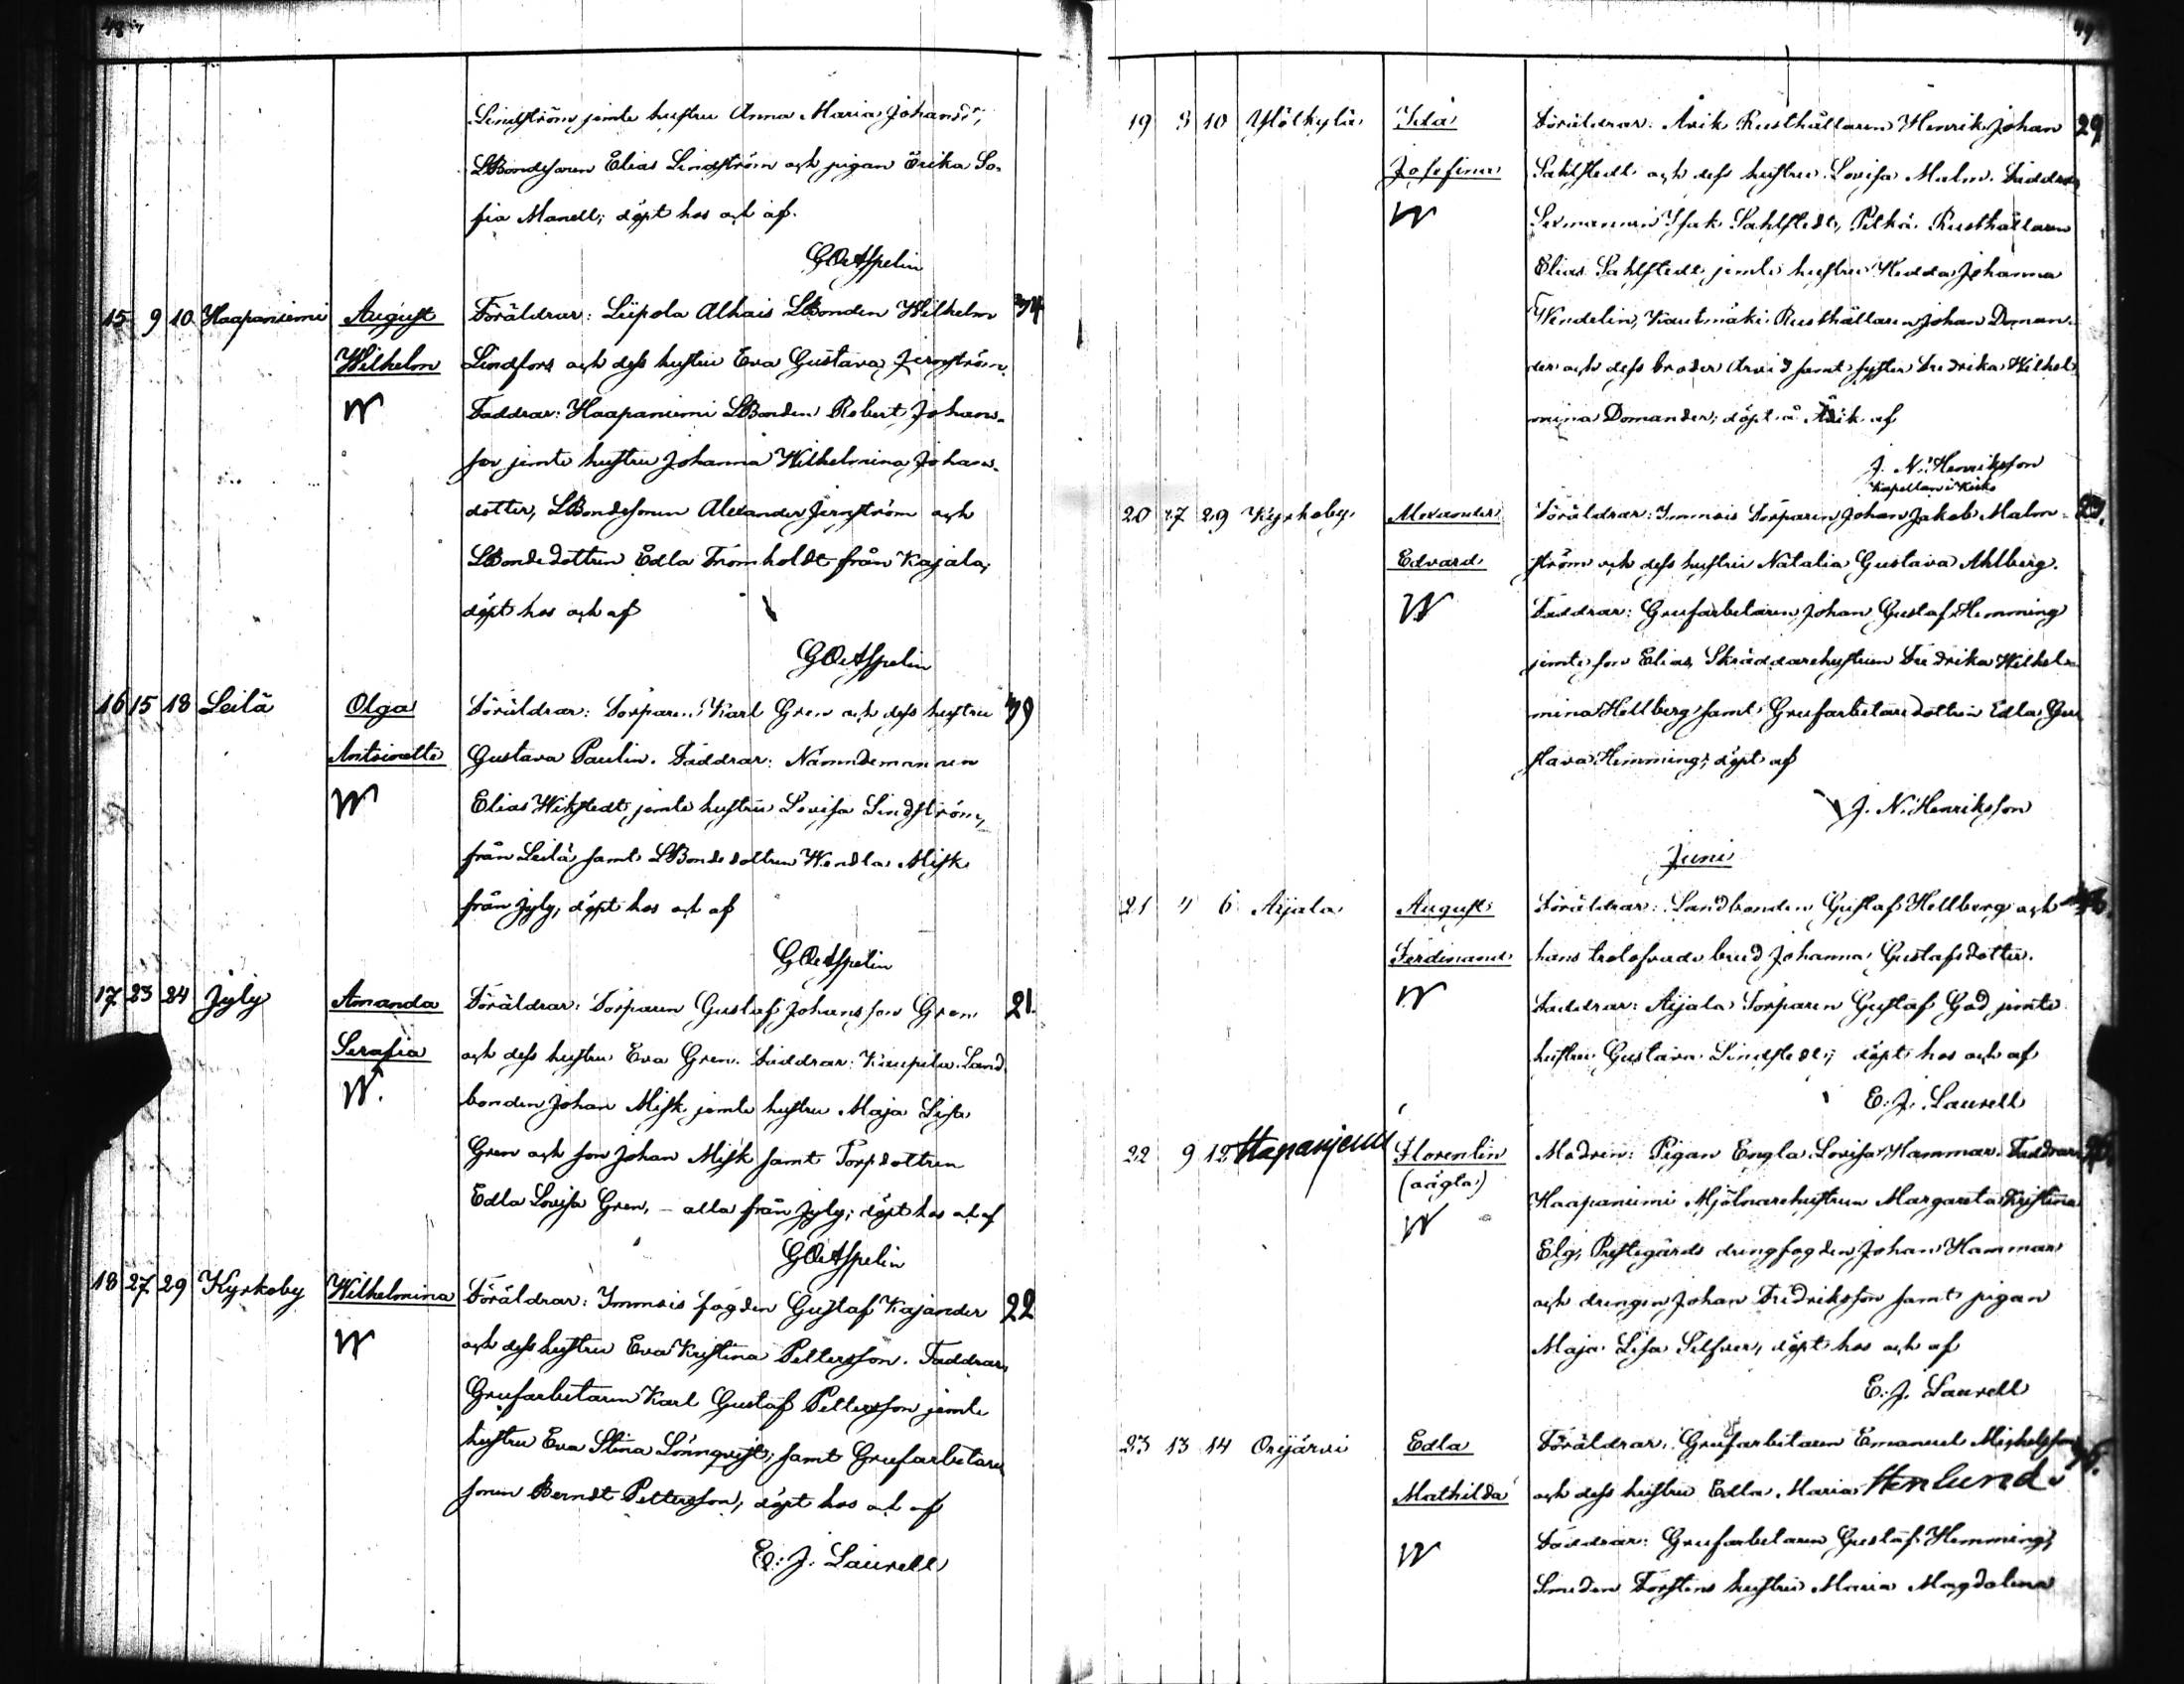 Lindström jemte hustru Anna Maria Johansdr,
LBondesonen Elias Lindström och pigan Erika So-
fia Manell; döpt hos och af.
G O Aspelin
15 9 10 Haapaniemi August Föräldrar: Liipola Alhais LBonden Wilhelm 34
Wilhelm Lindfors och dess hustru Eva Gustava Jernström.
W Faddrar: Haapaniemi LBonden Robert Johans-
son jemte hustru Johanna Wilhelmina Johans-
dotter, LBondesonen Alexander Jernström och
LBondedottren Edla Tromholdt från Kajala;
döpt hos och af
G O Aspelin
16 15 18 Leilä Olga Föräldrar: Torparen Karl Gren och dess hustru 39
Antoinette Gustava Paulin. Faddrar: Nämndemannen
W Elias Wikstedt jemte hustru Lovisa Lindström,
från Leilä samt LBondedottren Wendla Misk
från Jyly; döpt hos och af
G O Aspelin
17 23 24 Jyly Amanda Föräldrar: Torparen Gustaf Johansson Gren 21.
Serafia och dess hustru Eva Gren. Faddrar: Kaupila Land-
W. bonden Johan Misk jemte hustru Maja Lisa
Gren och son Johan Misk samt Torpdottren
Edla Lovisa Gren, – alla från Jyly; döpt hos och af
G O Aspelin
18 27 29 Kyrkoby Wilhelmina Föräldrar: Immois fogden Gustaf Kajander 22
W och dess hustru Eva Kristina Pettersson. Faddrar:
Grufarbetaren Karl Gustaf Pettersson jemte
hustru Eva Stina Lönnqvist; samt Grufarbetare
sonen Berndt Pettersson; döpt hos och af
E. J. Laurell
19 3 10 Ylölkylä Ida Föräldrar: Arik Rusthållaren Henrik Johan 29
Josefina Sahlstedt och dess hustru Lovisa Malm. Faddrar
W Sexmannen Isak Sahlstedt, Pitkä Rusthållaren
Elias Sahlstedt jemte hustru Hedda Johanna
Wendelin, Kautmäki Rusthållaren Johan Doman-
der och dess broder Arvid samt syster Fredrika Wilhel-
mina Domander; döpt å Arik af
J. N. Henriksson
Kapellan i Kisko
20 27 29 Kyrkoby Alexander Föräldrar: Immois Torparen Johan Jakob Malm-
Edvard ström och dess hustru Natalia Gustava Ahlberg.
W Faddrar: Grufarbetaren Johan Gustaf Hemming
jemte son Elias, Skräddarehustrun Fredrika Wilhel-
mina Hellberg samt Grufarbetaredottren Edla Gu-
stava Hemming; döpt af
J. N. Henriksson
Juni
21 4 6 Aijala August Föräldrar: Landbonden Gustaf Hellberg och
Ferdinand hans trolofvade brud Johanna Gustafsdotter.
W Faddrar: Aijala Torparen Gustaf God jemte
hustru Gustava Lindstedt; döpt hos och af
E. J. Laurell
22 9 12 Hapanjemi Florentin Modren: Pigan Engla Lovisa Hammar. Faddrar
(oägta) Haapaniemi Mjölnarehustrun Margareta Kristina
W Elg, Prestegårds drengfogden Johan Hammar
och drengen Johan Fredriksson samt pigan
Maja Lisa Silfver, döpt hos och af
E. J. Laurell
23 13 14 Orijärvi Edla Föräldrar: Grufarbetaren Emanuel Michelsson
Mathilda och dess hustru Edla Maria Stenlund.
W Faddrar: Grufarbetaren Gustaf Hemming,
Smeden Forstens hustru Maria Magdalena